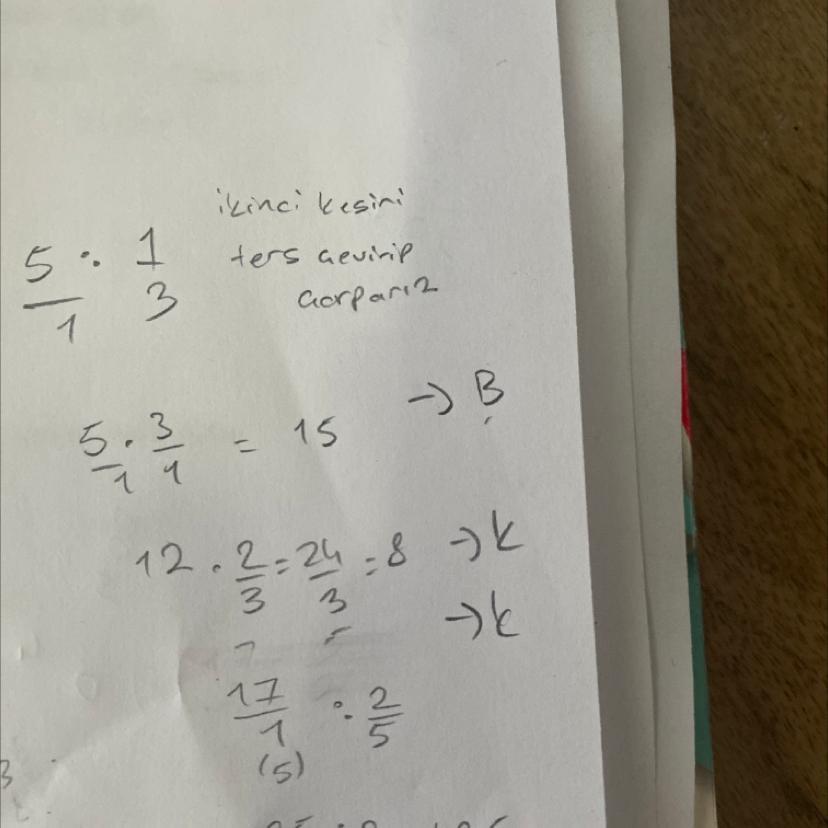 ikinci kesiri
5/1 : 1/3 ters çevirip
çarparız
5/1 . 3/1 = 15 → B
12 . 2/3 = 24/3 = 8 → k
→ k
17/1 : 2/5
(5)
3